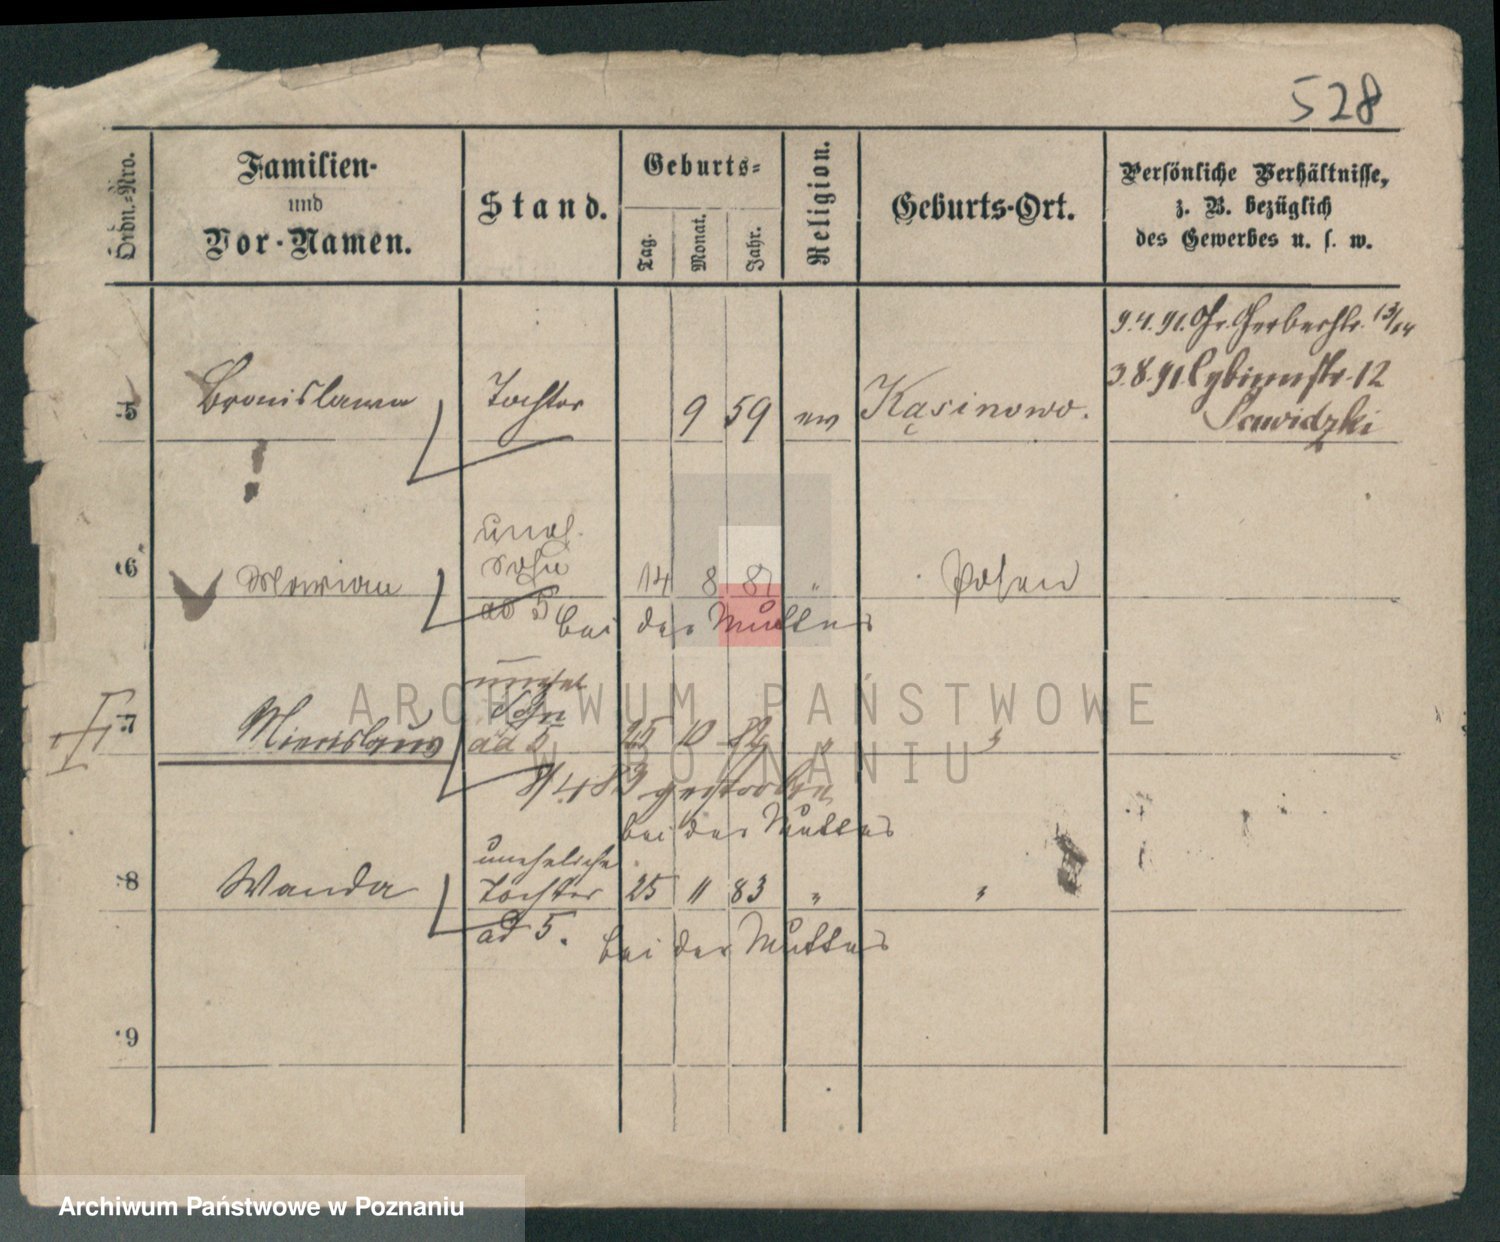 528
Ordn.-Nro.
Familien-
und
Vor-Namen.
Stand.
Geburts-
Tag.
Monat.
Jahr.
Religion.
Geburts-Ort.
Persönliche Verhältnisse,
z. B. bezüglich
des Gewerbes u. s. w.
9.4.91. Gr. Gerberstr. 13/14
3.8.91 Cybinastr. 12
5 Bronislawa Tochter 9 59 Kąsinowo.
unehl.
Sohn
6 Marian 14 8 " Posen
ad 5 bei der Mutter
Sohn
7 25 10 82 " "
ad 5
8/4 83 gestorben
bei der Mutter
uneheliche
8 Wanda Tochter 25 11 83 " "
ad 5. bei der Mutter
9
ARCHIWUM PAŃSTWOWE
W POZNANIU
Archiwum Państwowe w Poznaniu